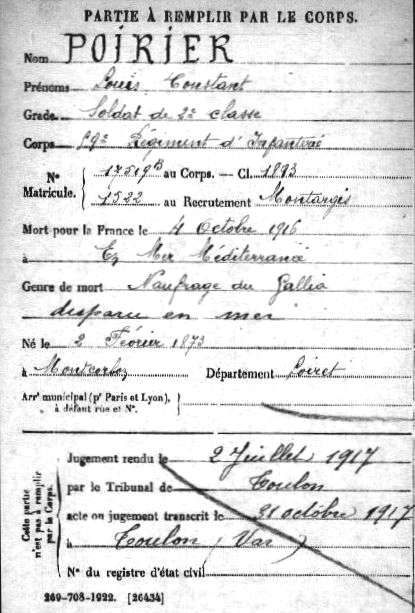 PARTIE À REMPLIR PAR LE CORPS.
Nom POIRIER
Prénoms Louis Constant
Grade Soldat de 2e classe
Corps Régiment d'Infanterie
Nº Matricule. 17519B au Corps. — Cl. 1893
1522 au Recrutement Montargis
Mort pour la France le 4 Octobre 1916
à En Mer Méditerranée
Genre de mort Naufrage du Gallia
disparu en mer
Né le 2 Février 1873
à Montcorbon Département Loiret
Arrt municipal (pr Paris et Lyon),
à défaut rue et Nº.
Cette partie n'est pas à remplir par le Corps.
Jugement rendu le 2 Juillet 1917
par le Tribunal de Toulon
acte ou jugement transcrit le 31 octobre 1917
à Toulon (Var)
Nº du registre d'état civil
269-708-1922. [26434]